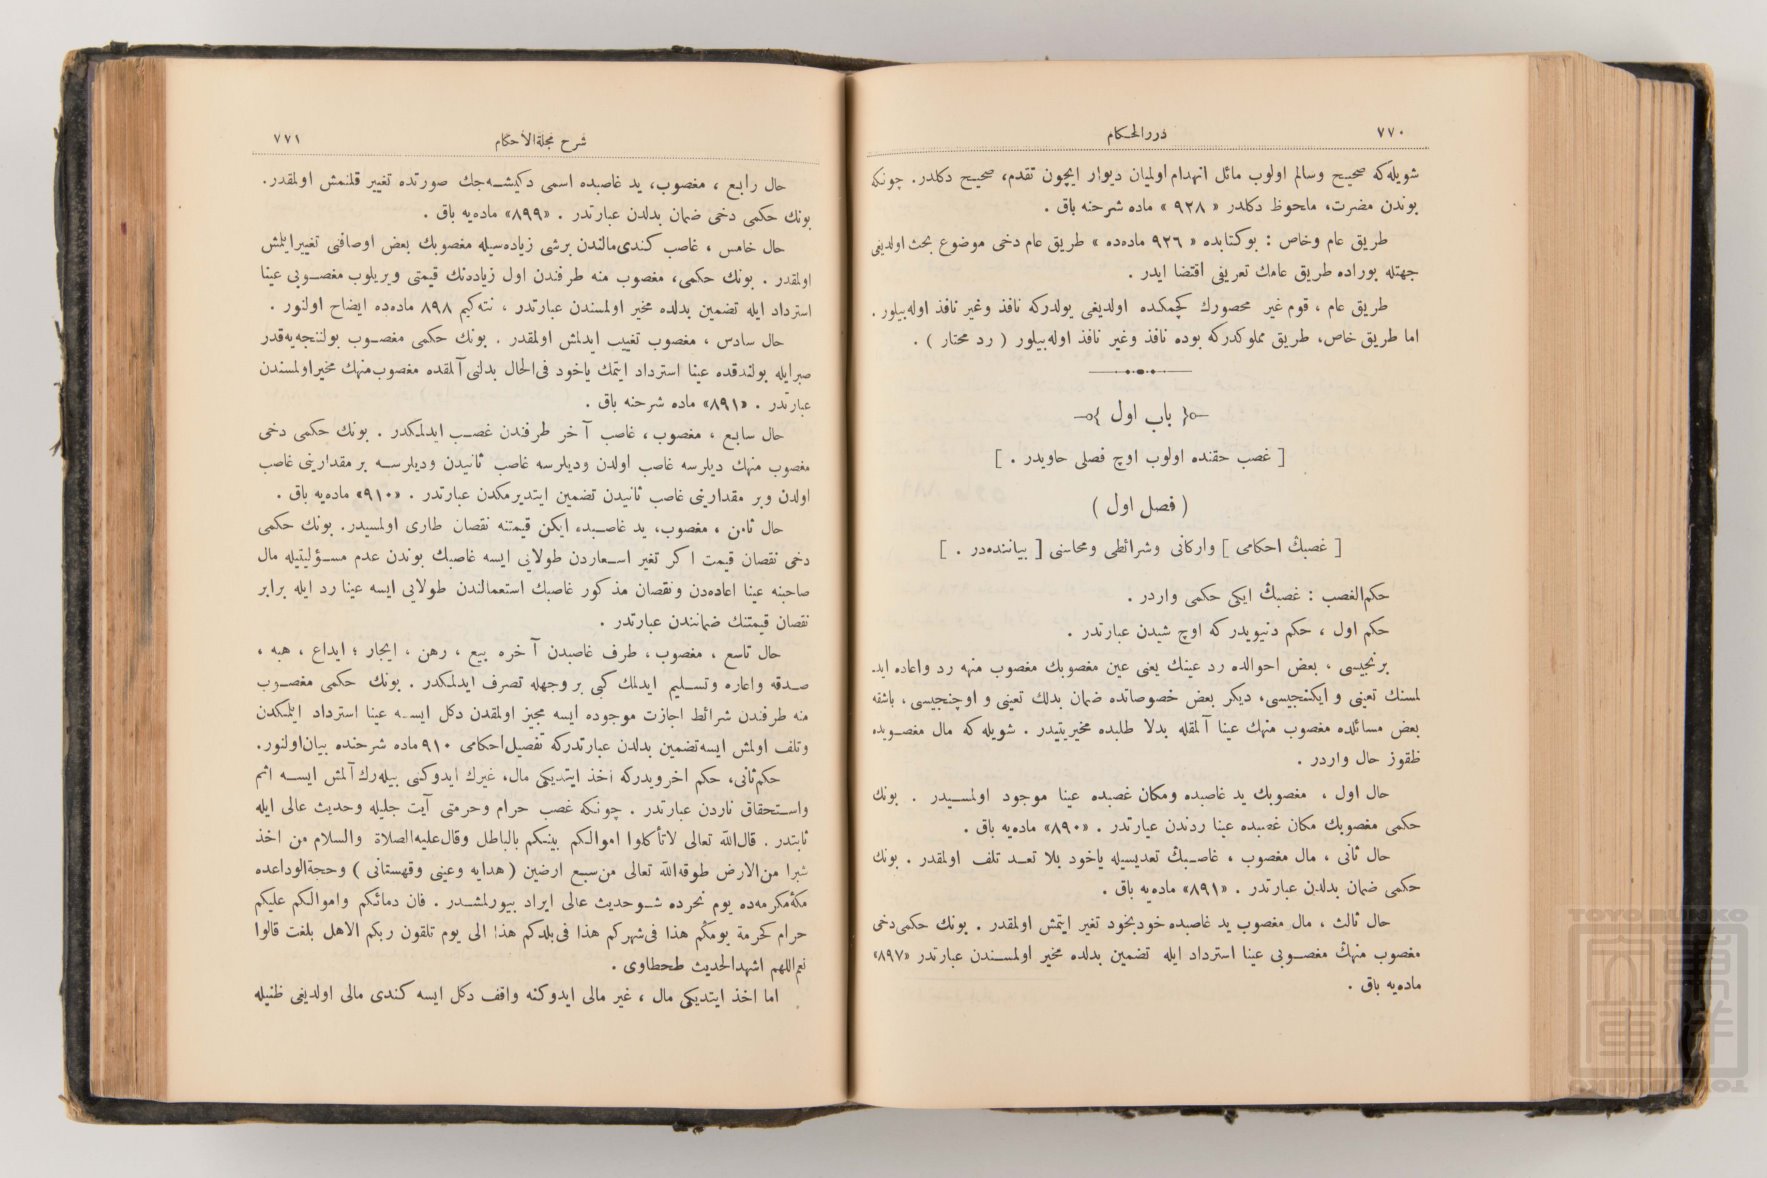 ٧٧٠
دررالحكام
شويله‌كه صحيح وسالم اولوب مائل انهدام اولميان ديوار ايچون تقدم، صحيح دكلدر. چونكه
بوندن مضرت، ملحوظ دكلدر « ٩٢٨ » ماده شرحنه باق .
طريق عام وخاص : بوكتابده « ٩٢٦ ماده‌ده » طريق عام دخى موضوع بحث اولديغى
جهتله بوراده طريق عامك تعريفى اقتضا ايدر .
طريق عام ، قوم غير محصورك كچمكده اولديغى يولدركه نافذ وغير نافذ اوله‌بيلور .
اما طريق خاص، طريق مملوكدركه بوده نافذ وغير نافذ اوله‌بيلور ( رد محتار ) .
باب اول
[ غصب حقنده اولوب اوچ فصلى حاويدر . ]
( فصل اول )
[ غصبڭ احكامى ] واركانى وشرائطى ومحاسنى [ بياننده‌در . ]
حكم‌الغصب : غصبڭ ايكى حكمى واردر .
حكم اول ، حكم دنيويدر كه اوچ شيدن عبارتدر .
برنجيسى ، بعض احوالده رد عينك يعنى عين مغصوبك مغصوب منهه رد واعاده ايد-
لمسنك تعينى و ايكنجيسى، ديكر بعض خصوصاتده ضمان بدلك تعينى و اوچنجيسى ، باشقه
بعض مسائلده مغصوب منهك عينا آلمقله بدلا طلبده مخيريتيدر . شويله كه مال مغصوبده
طقوز حال واردر .
حال اول ، مغصوبك يد غاصبده ومكان غصبده عينا موجود اولمسيدر . بونك
حكمى مغصوبك مكان غصبده عينا ردندن عبارتدر . «٨٩٠» ماده‌يه باق .
حال ثانى ، مال مغصوب ، غاصبڭ تعديسيله ياخود بلا تعد تلف اولمقدر . بونك
حكمى ضمان بدلدن عبارتدر . «٨٩١» ماده‌يه باق .
حال ثالث ، مال مغصوب يد غاصبده خودبخود تغير ايتمش اولمقدر . بونك حكمى‌دخى
مغصوب منهڭ مغصوبى عينا استرداد ايله تضمين بدلده مخير اولمسندن عبارتدر «٨٩٧»
ماده‌يه باق .
شرح مجلةالأحكام
٧٧١
حال رابع ، مغصوب، يد غاصبده اسمى دكيشه‌جك صورتده تغيير قلنمش اولمقدر.
بونك حكمى دخى ضمان بدلدن عبارتدر . «٨٩٩» ماده‌يه باق .
حال خامس ، غاصب كندى‌مالندن برشى زياده‌سيله مغصوبك بعض اوصافنى تغييرايلمش
اولمقدر . بونك حكمى، مغصوب منه طرفندن اول زياده‌نك قيمتى ويريلوب مغصوبى عينا
استرداد ايله تضمين بدلده مخير اولمسندن عبارتدر ، نته‌كيم ٨٩٨ ماده‌ده ايضاح اولنور .
حال سادس ، مغصوب تغييب ايدلمش اولمقدر . بونك حكمى مغصوب بولننجه‌يه‌قدر
صبرايله بولندقده عينا استرداد ايتمك ياخود فى‌الحال بدلنى آلمقده مغصوب‌منهك مخيراولمسندن
عبارتدر . «٨٩١» ماده شرحنه باق .
حال سابع ، مغصوب، غاصب آخر طرفندن غصب ايدلمكدر . بونك حكمى دخى
مغصوب منهك ديلرسه غاصب اولدن وديلرسه غاصب ثانيدن وديلرسه بر مقدارينى غاصب
اولدن وبر مقدارينى غاصب ثانيدن تضمين ايتديرمكدن عبارتدر . «٩١٠» ماده‌يه باق .
حال ثامن ، مغصوب، يد غاصبده ايكن قيمتنه نقصان طارى اولمسيدر. بونك حكمى
دخى نقصان قيمت اكر تغير اسعاردن طولايى ايسه غاصبك بوندن عدم مسؤليتيله مال
صاحبنه عينا اعاده‌دن ونقصان مذكور غاصبك استعمالندن طولايى ايسه عينا رد ايله برابر
نقصان قيمتنك ضمانندن عبارتدر .
حال تاسع ، مغصوب ، طرف غاصبدن آخره بيع ، رهن ، ايجار ؛ ايداع ، هبه ،
صدقه واعاره وتسليم ايدلمك كبى بر وجهله تصرف ايدلمكدر . بونك حكمى مغصوب
منه طرفندن شرائط اجازت موجوده ايسه مجيز اولمقدن دكل ايسه عينا استرداد ايلمكدن
وتلف اولمش ايسه تضمين بدلدن عبارتدركه تفصيل‌احكامى ٩١٠ ماده شرحنده بيان‌اولنور.
حكم‌ثانى، حكم اخرويدركه اخذ ايتديكى مال، غيرك ايدوكنى بيله‌رك‌آلمش ايسه اثم
واستحقاق ناردن عبارتدر . چونكه غصب حرام وحرمتى آيت جليله وحديث عالى ايله
ثابتدر . قال‌الله تعالى لاتأكلوا اموالكم بينكم بالباطل وقال‌عليه‌الصلاة والسلام من اخذ
شبرا من‌الارض طوقه‌الله تعالى من‌سبع ارضين ( هدايه وعينى وقهستانى ) وحجةالوداعده
مكه‌مكرمه‌ده يوم نحرده شوحديث عالى ايراد بيورلمشدر . فان دمائكم واموالكم عليكم
حرام كحرمة يومكم هذا فى‌شهركم هذا فى‌بلدكم هذا الى يوم تلقون ربكم الاهل بلغت قالوا
نعم‌اللهم اشهدالحديث طحطاوى .
اما اخذ ايتديكى مال ، غير مالى ايدوكنه واقف دكل ايسه كندى مالى اولديغى ظنيله
TOYO BUNKO